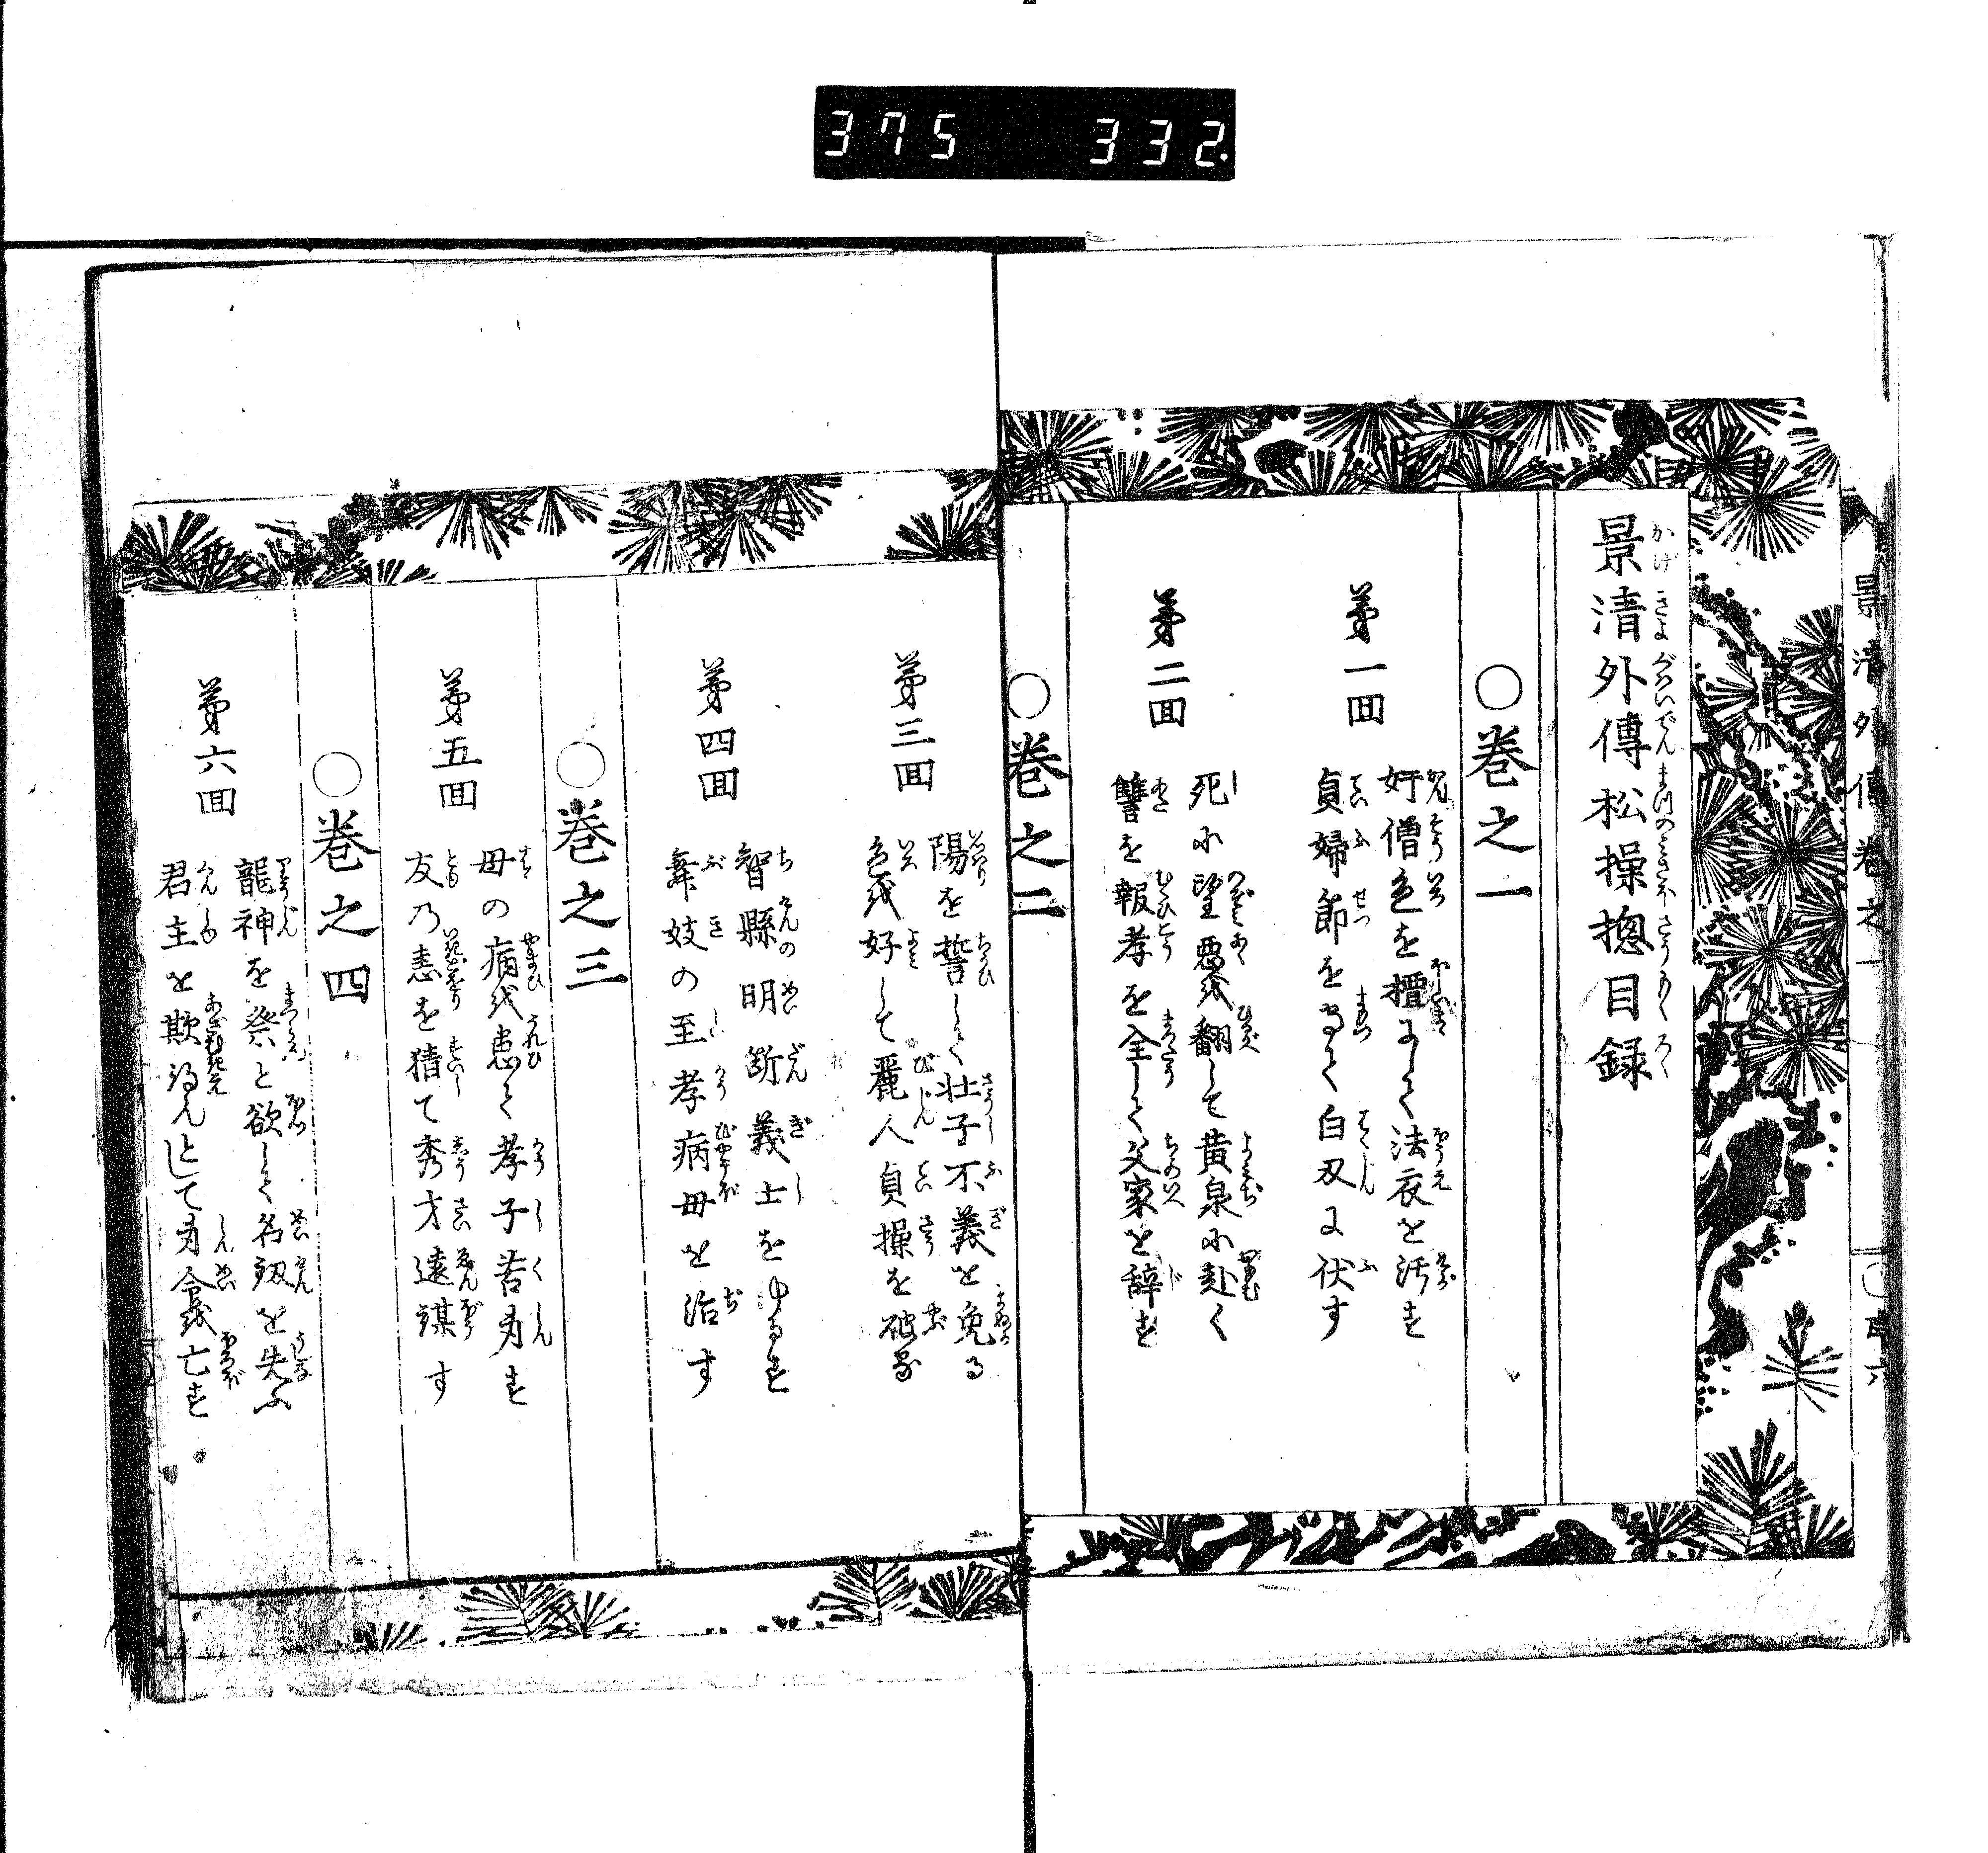 375 332.
景清外傳松操摠目録
かげきよぐわいでんまつのみさほさうもくろく
○巻之一
第一回
奸僧色を擅にして法衣を汚す
貞婦節を守て白刃に伏す
第二回
死に望悪を翻して黄泉に赴く
讐を報孝を全して父家を辞す
○巻之二
第三回
陽を誓して壮子不義を免る
色を好して麗人貞操を破る
第四回
智縣明断義士をゆるす
舞妓の至孝病母を治す
○巻之三
第五回
母の病を患て孝子苦身す
友の恚を猜て秀才遠謀す
○巻之四
第六回
龍神を祭と欲して名剱を失ふ
君主を欺得んとして身命を亡す
景清外傳巻之一